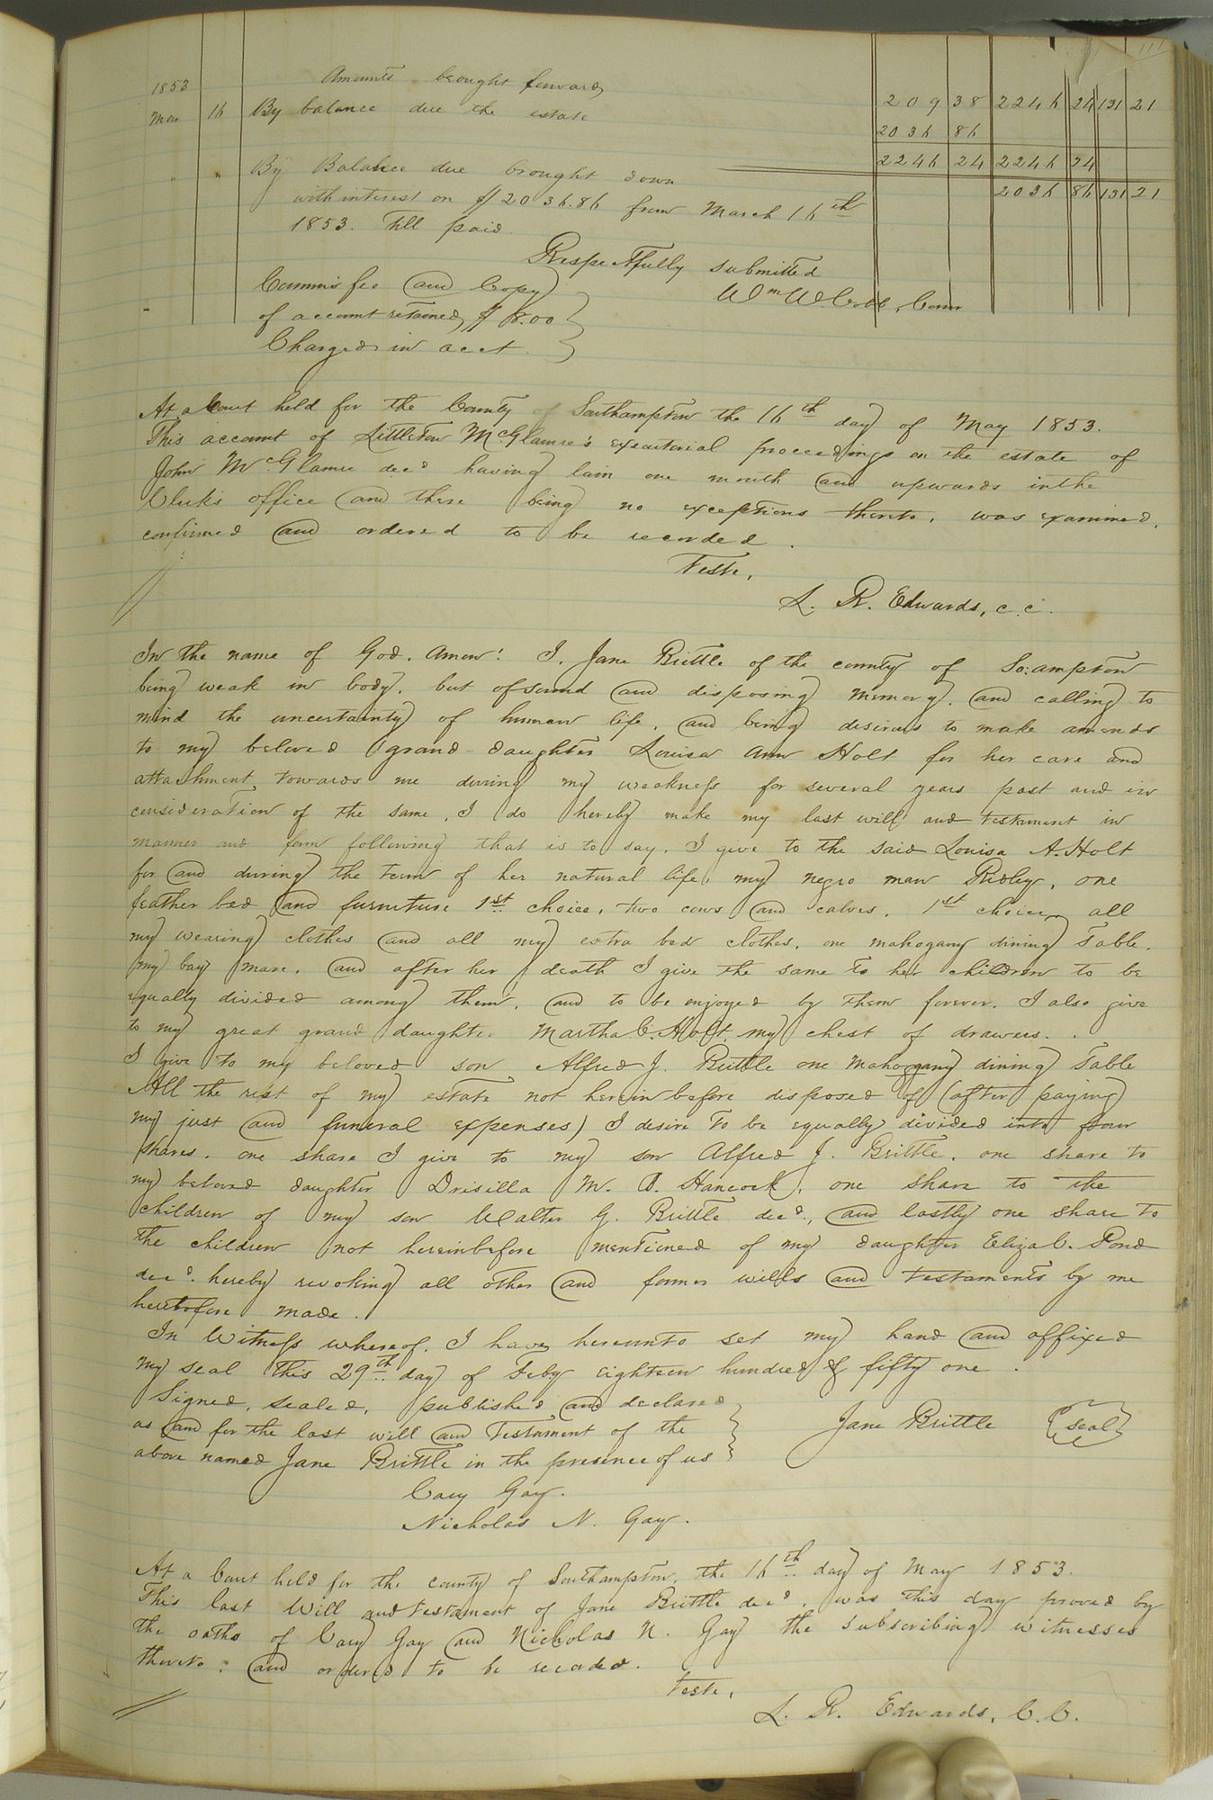 111
Amounts brought forward 209 38 2246 24 131 21
1853
Mar 16 By balance due the estate 2036 86
2246 24 2246 24
" " By Balance due brought down 2036 86 131 21
with interest on $2036.86 from March 16th
1853. till paid.
Respectfully submitted
Wm W Cobb, Comr
Commis fee and Copy
of account retained, $8.00
Charged in acct
At a Court held for the County of Southampton the 16th day of May 1853.
This account of Littleton McGlamre's executorial proceedings on the estate of
John McGlamre decd having lain one month and upwards in the
Clerk's office and there being no exceptions thereto, was examined,
confirmed and ordered to be recorded.
Teste,
L. R. Edwards, c. c.
In the name of God. Amen! I, Jane Brittle of the county of So:ampton
being weak in body, but of sound and disposing memory, and calling to
mind the uncertainty of human life, and being desirous to make amends
to my beloved grand daughter Louisa Ann Holt for her care and
attachment towards me during my weakness for several years past and in
consideration of the same, I do hereby make my last will and testament in
manner and form following that is to say, I give to the said Louisa A. Holt
for and during the term of her natural life, my negro man Ridley, one
feather bed and furniture 1st choice, two cows and calves, 1st choice, all
my wearing clothes and all my extra bed clothes, one mahogany dining Table,
my bay mare, and after her death I give the same to her children to be
equally divided among them, and to be enjoyed by them forever. I also give
to my great grand daughter Martha C. Holt my chest of drawers.
I give to my beloved son Alfred J. Brittle one mahogany dining Table
All the rest of my estate not herein before disposed of (after paying
my just and funeral expenses) I desire to be equally divided into four
shares, one share I give to my son Alfred J. Brittle, one share to
my beloved daughter Drisilla M. B. Hancock, one share to the
children of my son Walter G. Brittle decd., and lastly one share to
the children not hereinbefore mentioned of my daughter Eliza C. Pond
decd. hereby revoking all other and former wills and testaments by me
heretofore made.
In Witness whereof, I have hereunto set my hand and affixed
my seal this 29th day of Feby eighteen hundred & fifty one.
Signed, sealed, published and declared
as and for the last will and Testament of the
above named Jane Brittle in the presence of us
Jane Brittle {seal}
Cary Gay.
Nicholas N. Gay.
At a Court held for the county of Southampton, the 16th day of May 1853.
This last Will and testament of Jane Brittle decd. was this day proved by
the oaths of Cary Gay and Nicholas N. Gay the subscribing witnesses
thereto: and ordered to be recorded.
Teste,
L. R. Edwards, C. C.